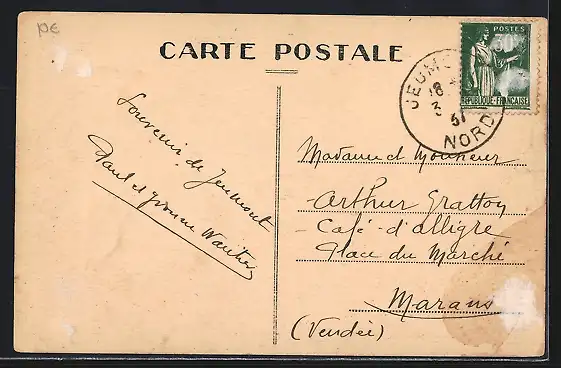 10€
CARTE POSTALE
POSTES
REPUBLIQUE FRANCAISE
JEUMONT
18
3
37
NORD
Souvenir de Jeumont
Paul et Yvonne
Madame et Monsieur
Arthur Gratton
Café d'alligre
Place du Marché
Marans
(Vendée)